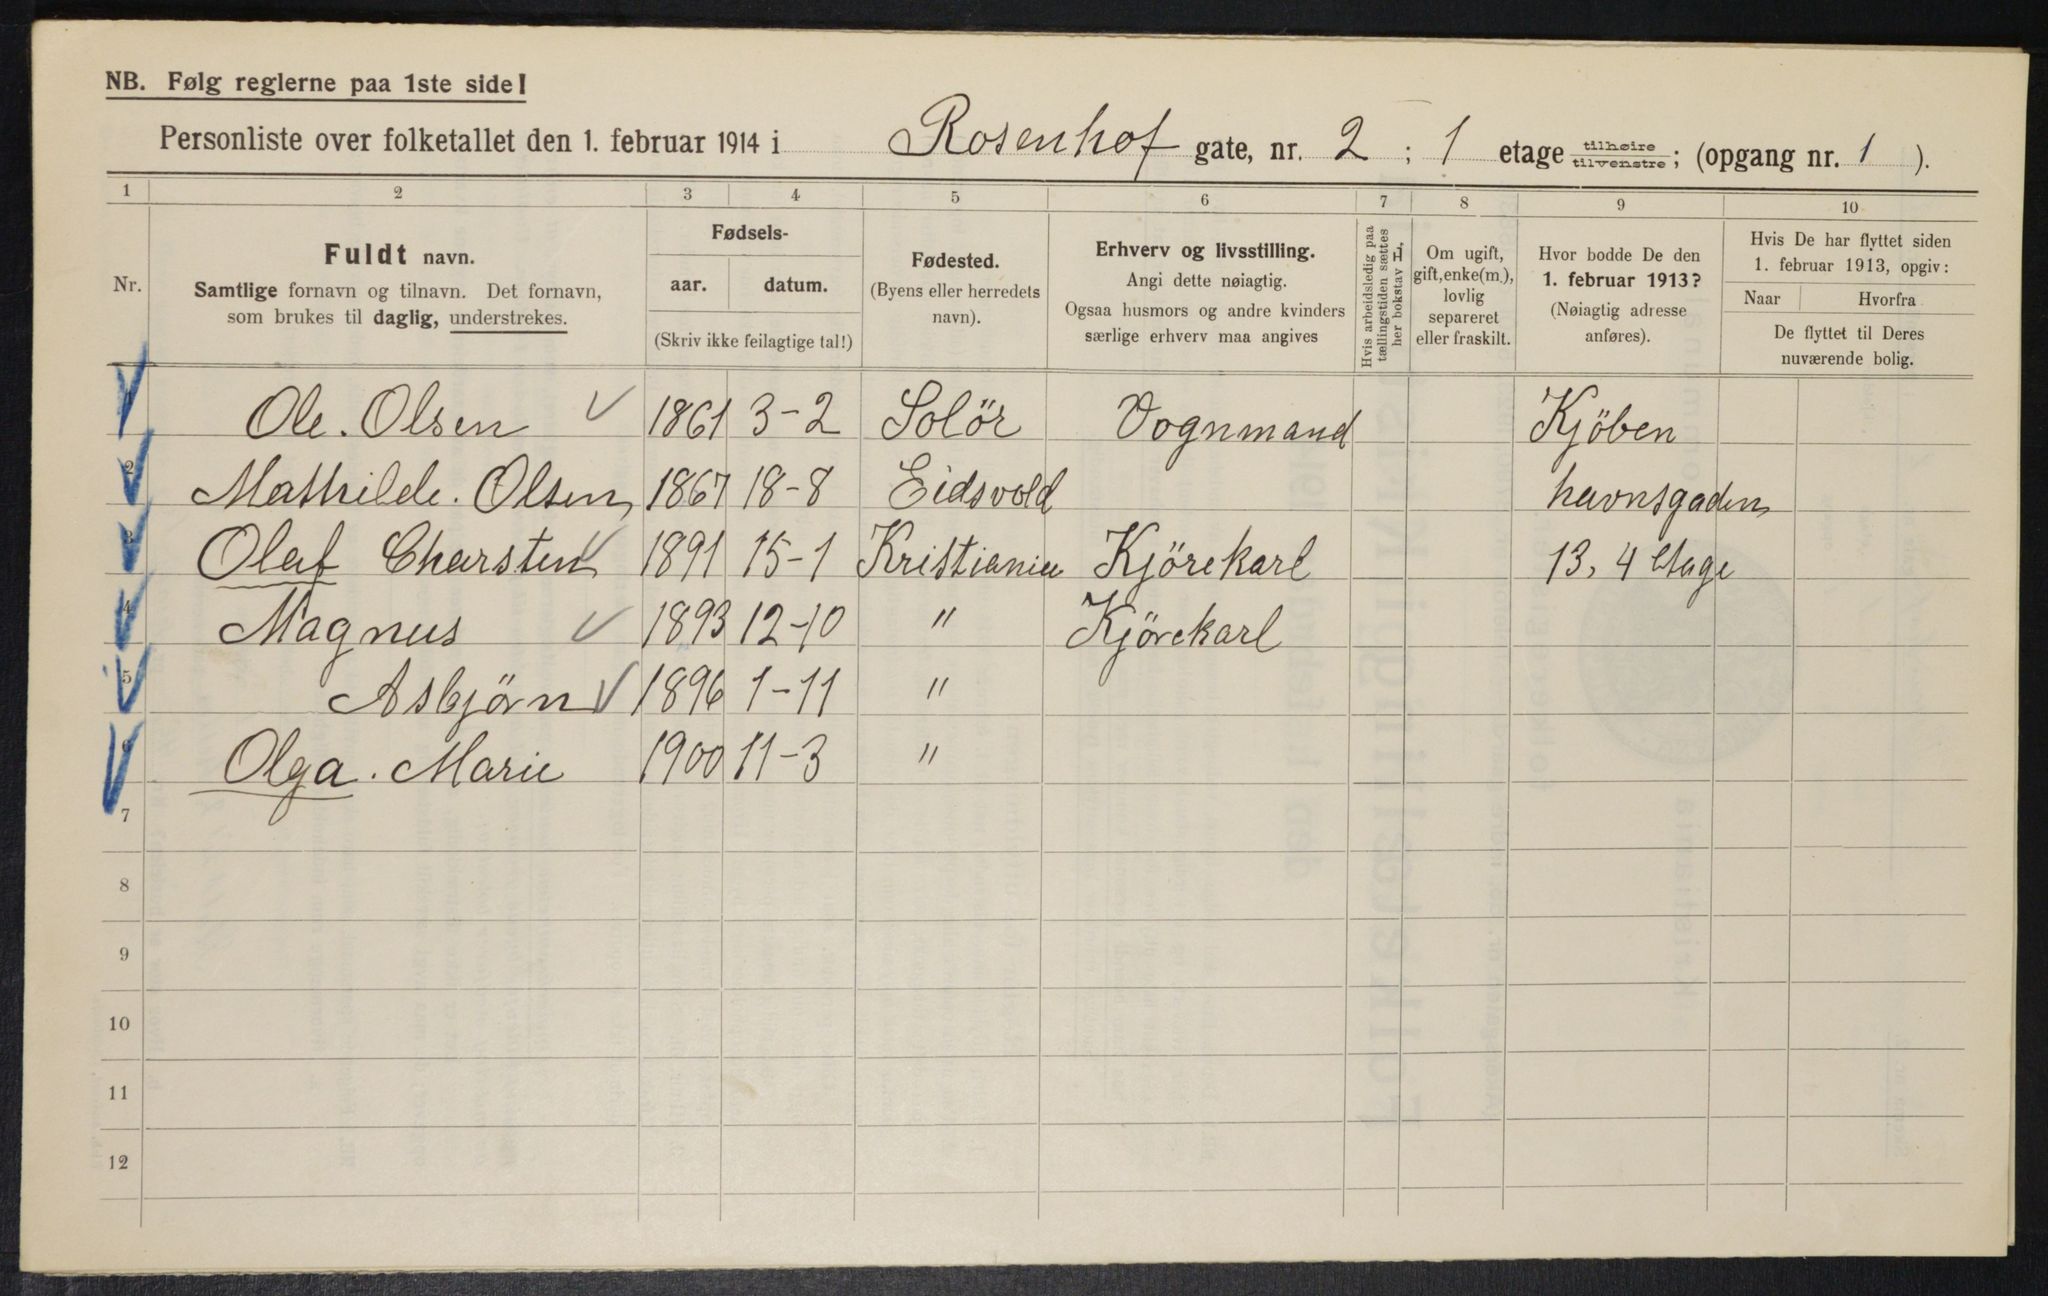 NB. Følg reglerne paa 1ste side!
Personliste over folketallet den 1. februar 1914 i Rosenhof gate, nr. 2 ; 1 etage tilhøire tilvenstre; (opgang nr. 1 ).
1 2 3 4 5 6 7 8 9 10
Nr.
Fuldt navn.
Samtlige fornavn og tilnavn. Det fornavn,
som brukes til daglig, understrekes.
Fødsels-
aar. datum.
(Skriv ikke feilagtige tal!)
Fødested.
(Byens eller herredets
navn).
Erhverv og livsstilling.
Angi dette nøiagtig.
Ogsaa husmors og andre kvinders
særlige erhverv maa angives
Hvis arbeidsledig paa
tællingstiden sættes
her bokstav L.
Om ugift,
gift, enke(m.),
lovlig
separeret
eller fraskilt.
Hvor bodde De den
1. februar 1913?
(Nøiagtig adresse
anføres).
Hvis De har flyttet siden
1. februar 1913, opgiv:
Naar Hvorfra
De flyttet til Deres
nuværende bolig.
1 Ole. Olsen 1861 3-2 Solör Vognmand Kjöben
2 Mathilde. Olsen, 1867 18-8 Eidsvold havnsgaden
3 Olaf Charsten 1891 15-1 Kristiania Kjörekarl 13, 4 Etage
4 Magnus 1893 12-10 " Kjörekarl
5 Asbjörn 1896 1-11 "
6 Olga. Marie 1900 11-3 "
7
8
9
10
11
12